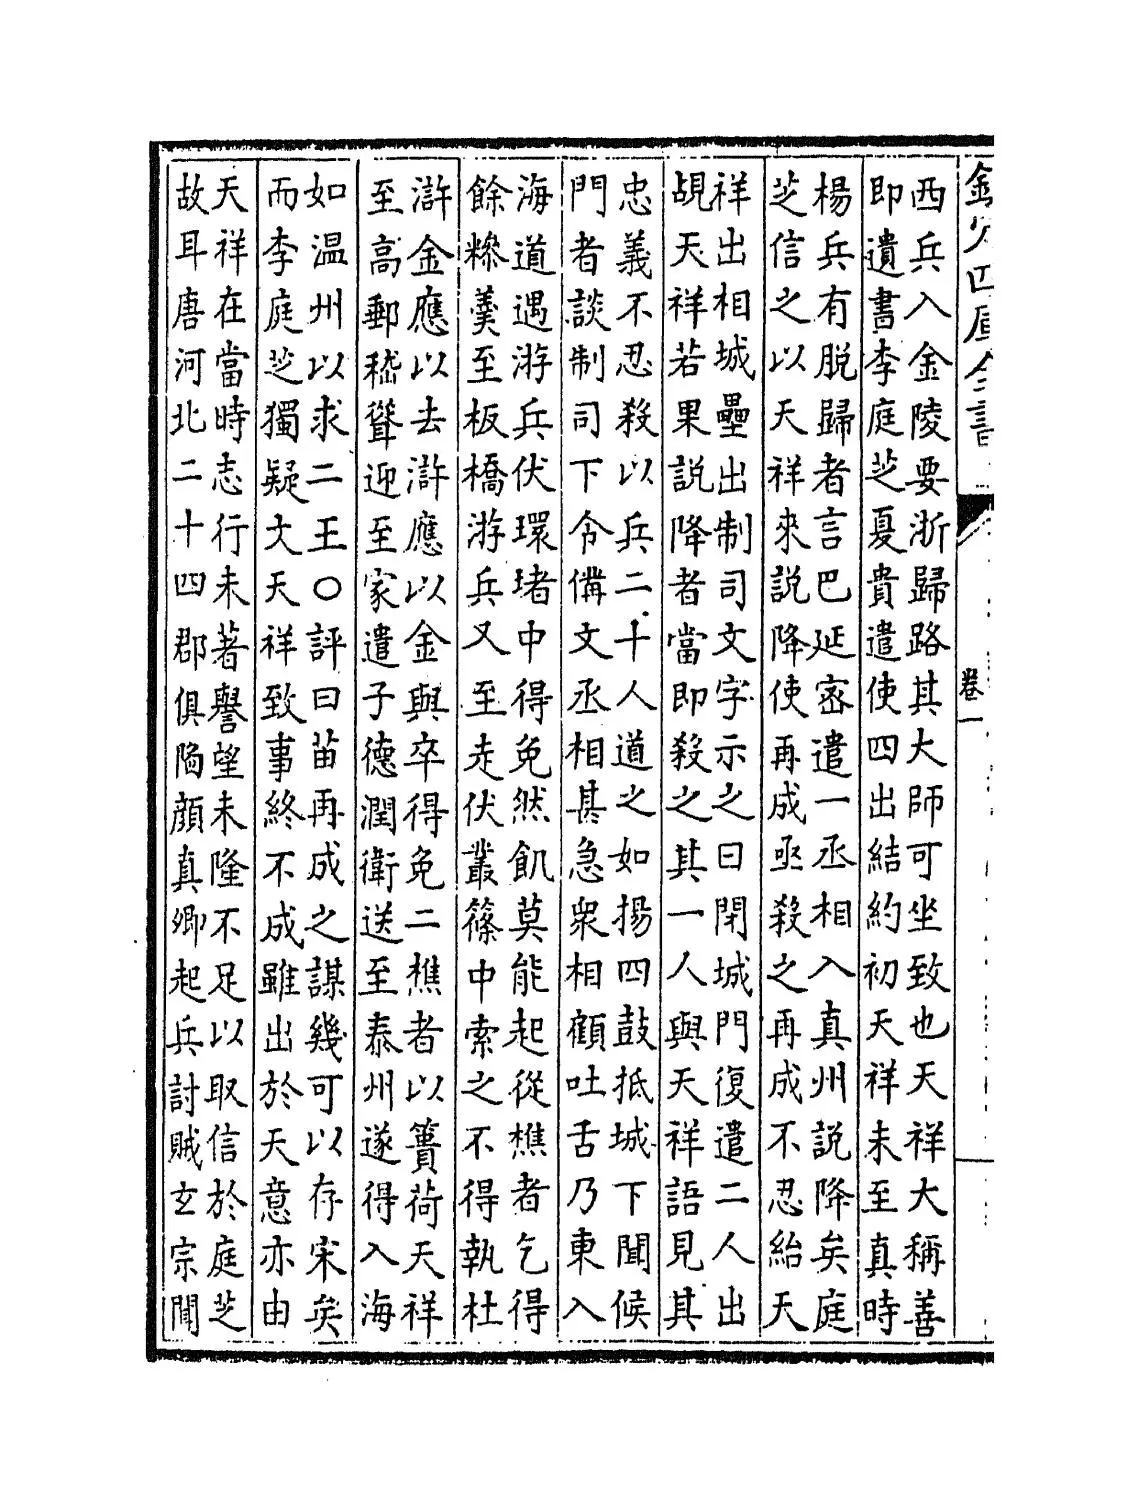 欽定四庫全書
卷一
西兵入金陵要浙歸路其大師可坐致也天祥大稱善
即遺書李庭芝夏貴遣使四出結約初天祥未至真時
楊兵有脫歸者言巴延密遣一丞相入真州說降矣庭
芝信之以天祥來説降使再成亟殺之再成不忍紿天
祥出相城壘出制司文字示之曰閉城門復遣二人出
覘天祥若果説降者當即殺之其一人與天祥語見其
忠義不忍殺以兵二十人道之如揚四鼓抵城下聞候
門者談制司下令備文丞相甚急衆相顧吐舌乃東入
海道遇游兵伏環堵中得免然飢莫能起從樵者乞得
餘糝羹至板橋游兵又至走伏叢篠中索之不得執杜
滸金應以去滸應以金與卒得免二樵者以蕢荷天祥
至高郵嵇聳迎至家遣子德潤衛送至泰州遂得入海
如温州以求二王○評曰苗再成之謀幾可以存宋矣
而李庭芝獨疑文天祥致事終不成雖出於天意亦由
天祥在當時志行未著譽望未隆不足以取信於庭芝
故耳唐河北二十四郡俱陷顔真卿起兵討賊玄宗聞